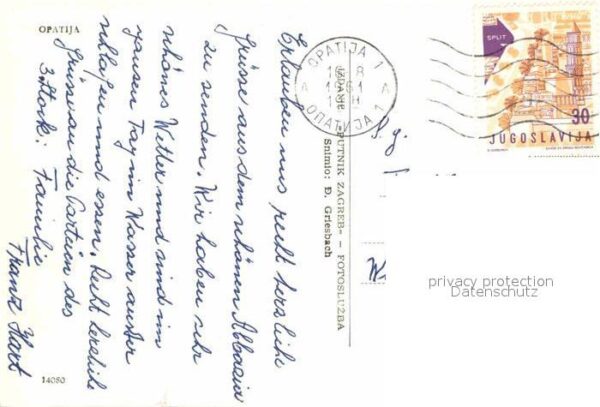 OPATIJA
Erlauben uns recht herzliche
Grüsse aus dem schönen Abbazia
zu senden. Wir haben sehr
schönes Wetter und sind im
ganzen Tag im Wasser außer
schlafen und essen. Recht herzliche
Grüsse an die Parteien des
3. Stock: Familie
Franz Hart
14080
IZDANJE PUTNIK ZAGREB – FOTOSLUŽBA
Snimio: Đ. Griesbach
OPATIJA 1
A A
ОПАТИЈА 1
SPLIT
30
JUGOSLAVIJA
S. g.
privacy protection
Datenschutz